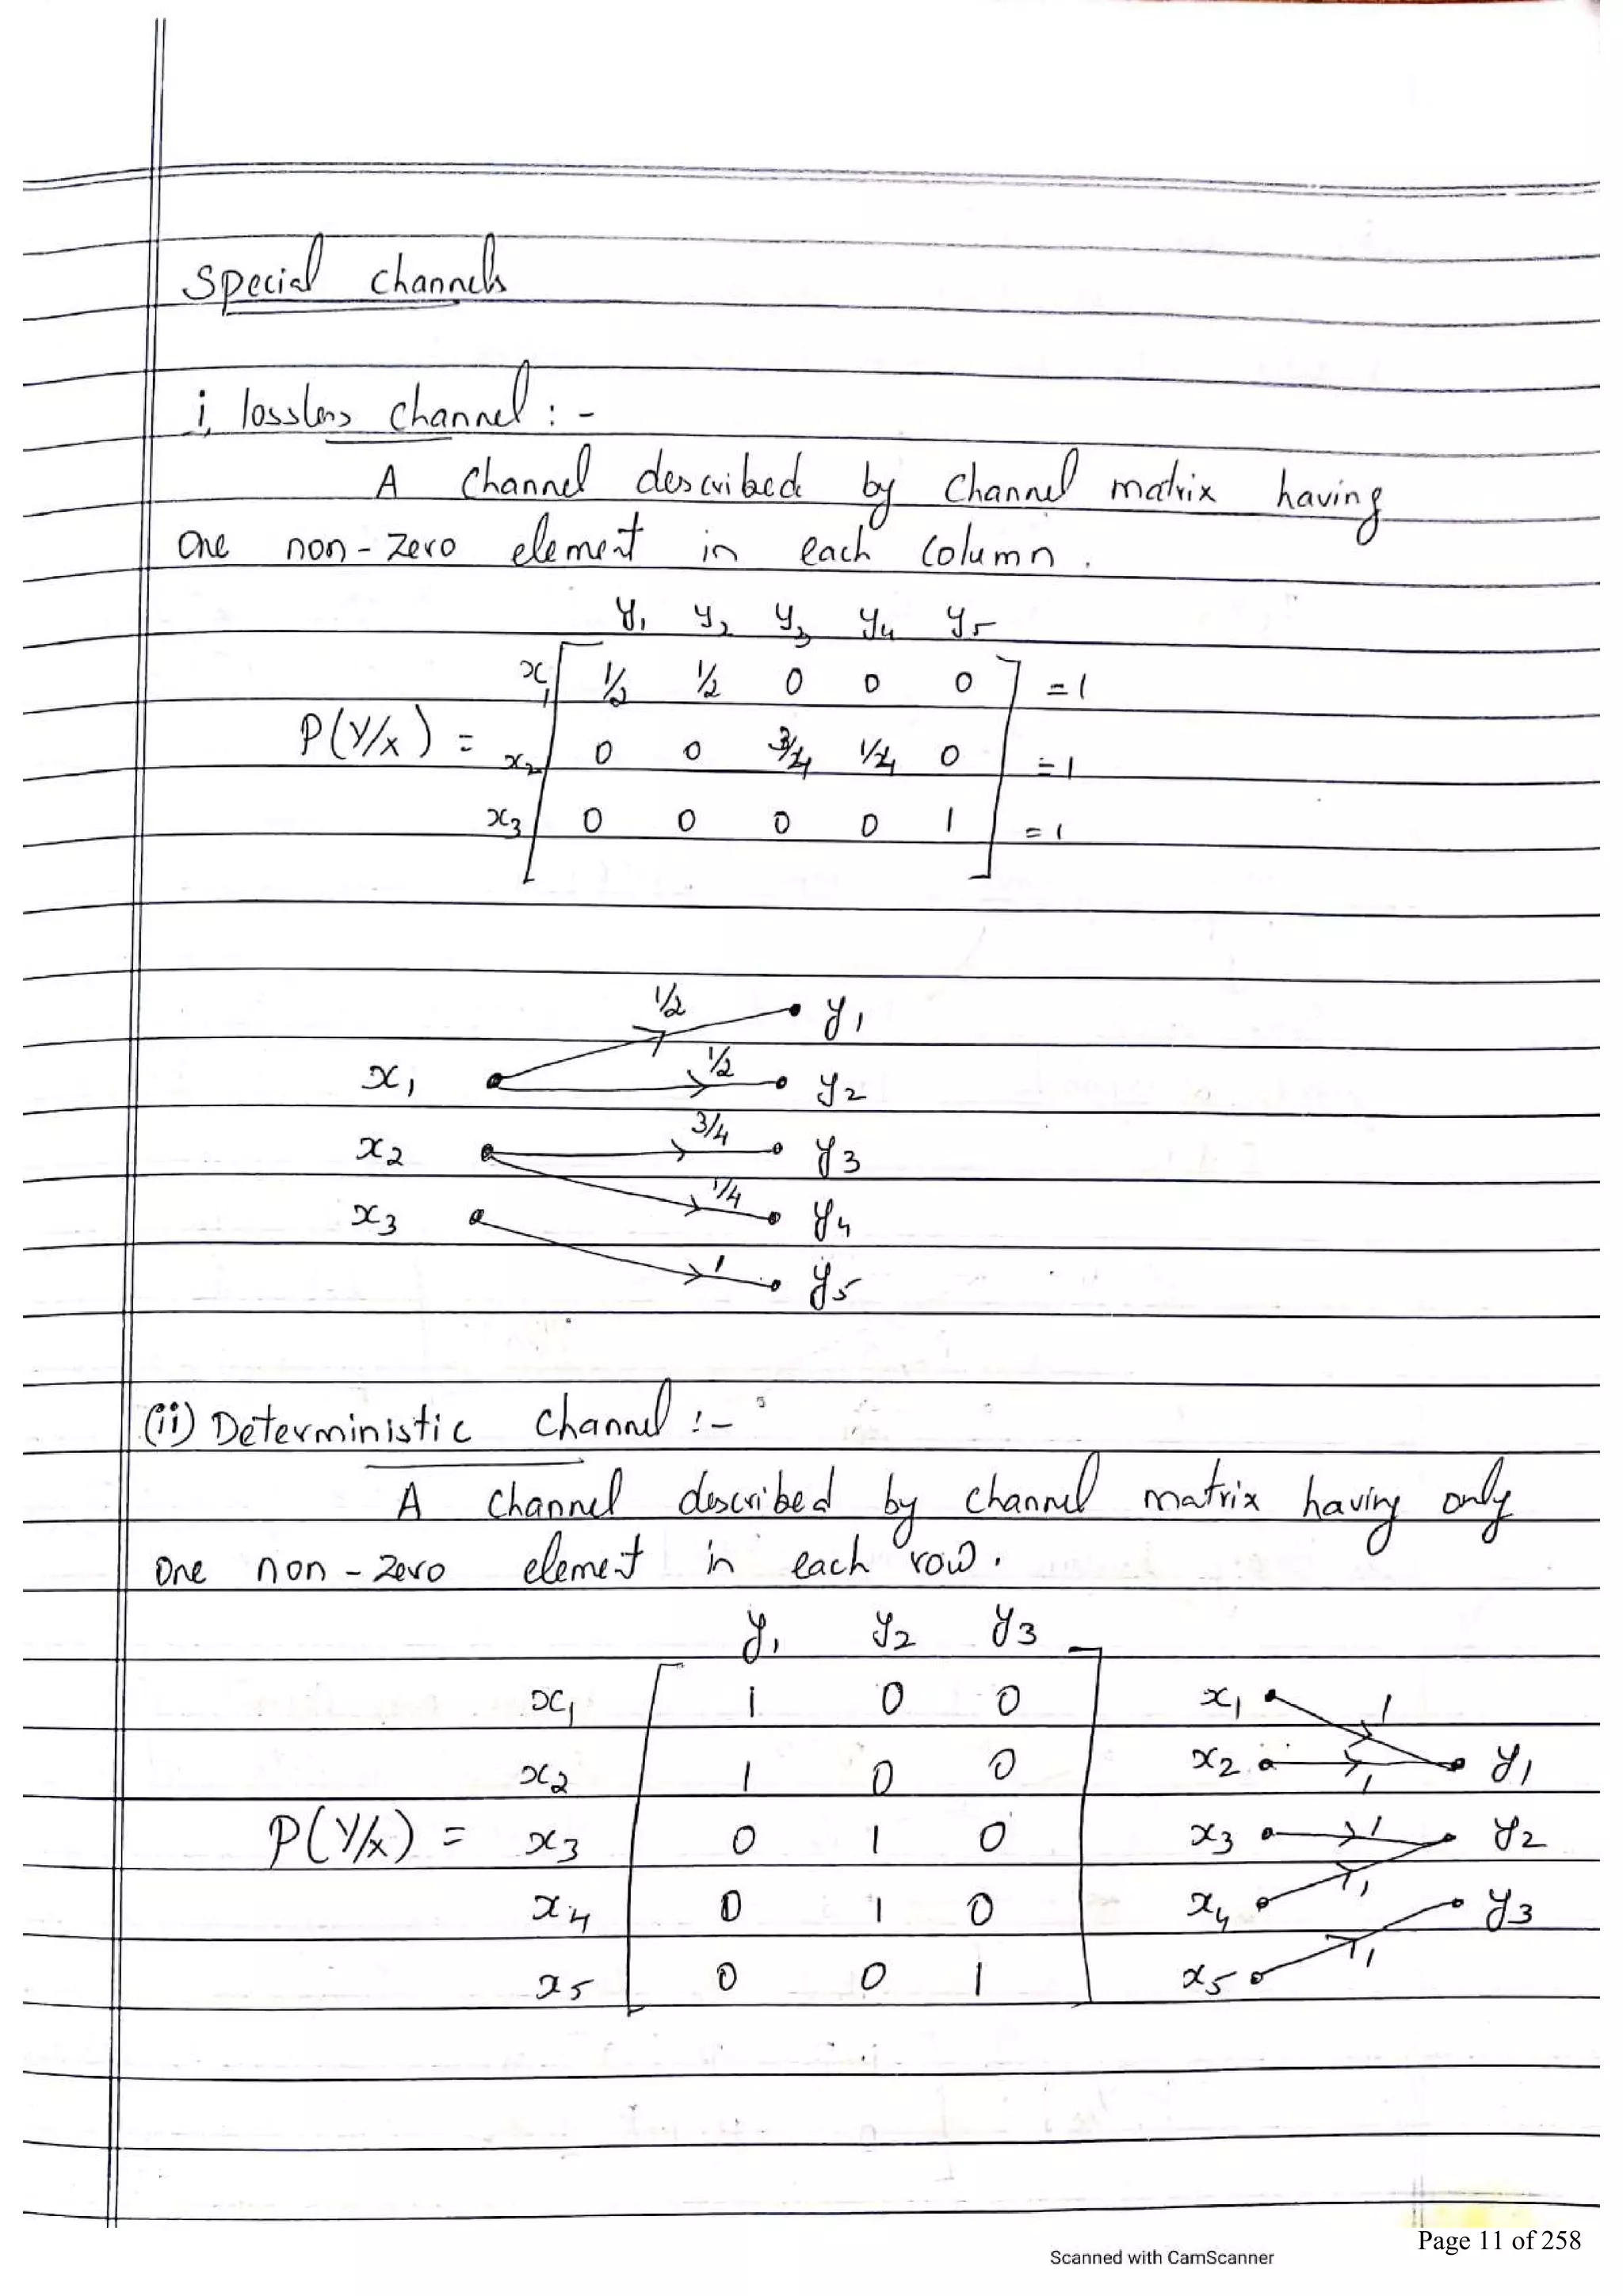 Special channels
i, lossless channel : -
A channel described by channel matrix having
one non-zero element in each column.
y1 y2 y3 y4 y5
x1 1/2 1/2 0 0 0 = 1
P(Y/X) = x2 0 0 3/4 1/4 0 = 1
x3 0 0 0 0 1 = 1
1/2 y1
x1 1/2 y2
x2 3/4 y3
x3 1/4 y4
1 y5
(ii) Deterministic channel :-
A channel described by channel matrix having only
one non-zero element in each row.
y1 y2 y3
x1 1 0 0 x1 1
x2 1 0 0 x2 1 y1
P(Y/X) = x3 0 1 0 x3 1 y2
x4 0 1 0 x4 1 y3
x5 0 0 1 x5 1
Page 11 of 258
Scanned with CamScanner